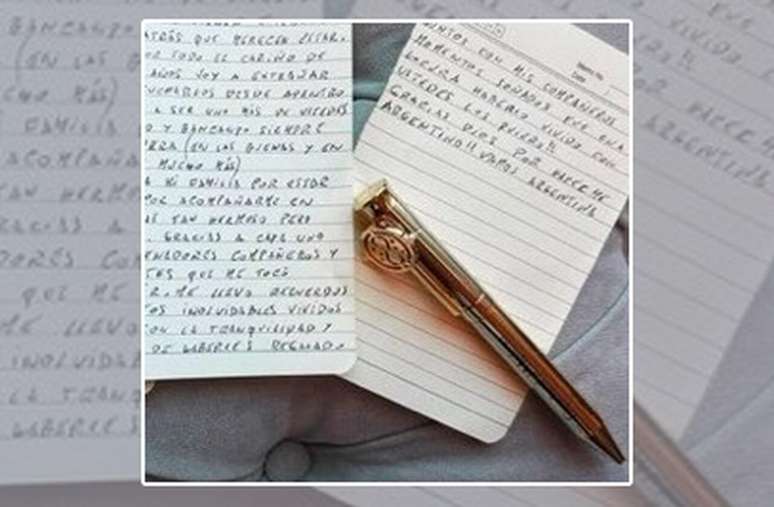 ATRÁS QUE MERECEN ESTAR.
POR TODO EL CARIÑO DE
AÑOS VOY A EXTRAÑAR
DESDE ADENTRO
A SER UNO MÁS DE USTEDES
O Y BANCANDO SIEMPRE
(EN LAS BUENAS Y EN
MUCHO MÁS)
A MI FAMILIA POR ESTAR
POR ACOMPAÑARME EN
AS TAN HERMOSO PERO
. GRACIAS A CADA UNO
COMPAÑEROS Y
TES QUE ME TOCÓ
R. ME LLEVO RECUERDOS
OS INOLVIDABLES VIVIDOS
CON LA TRANQUILIDAD Y
DE HABERLES
JUNTOS CON MIS COMPAÑEROS
MOMENTOS SOÑADOS FUE UNA
LOCURA HABERLO VIVIDO CON
USTEDES LOS QUIERO!!
GRACIAS DIOS POR HACERME
ARGENTINO!! VAMOS ARGENTINA